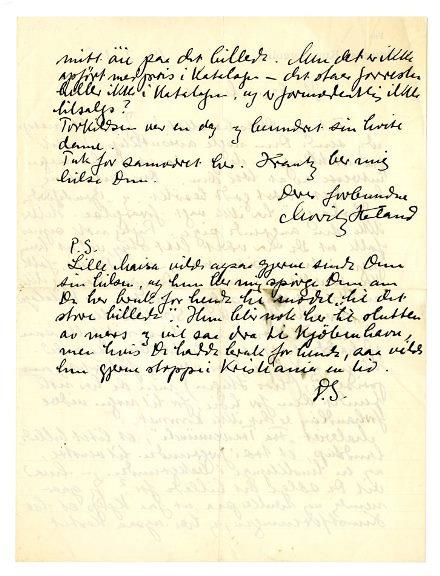 mitt øie paa det billede. Men det er ikke
opført med pris i Katalogen – det staar forresten
heller ikke i Katalogen, og er formodentlig ikke
tilsalgs?
Torkildsen var en dag og beundret sin hvite
dame.
Tak for samværet her. Krantz ber mig
hilse Dem.
Deres forbundne
Moritz Kaland
P.S.
Lille Maisa vilde ogsaa gjerne sende Dem
sin hilsen, og hun ber mig spørge Dem om
De har bruk for hende til model til det
store billede? Hun blir nok her til slutten
av mars og vil saa dra til Kjøbenhavn,
men hvis De hadde bruk for hende, saa vilde
hun gjerne stoppe i Kristiania en tid.
D.S.